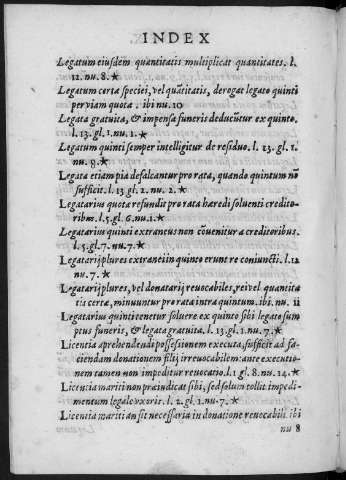 INDEX
Legatum eiusdem quantitatis multiplicat quantitates. l.
12. nu. 8. ★
Legatum certæ speciei, vel quãtitatis, derogat legato quinti
per viam quotæ. ibi nu. 10
Legata gratuita, & impensa funeris deducũtur ex quinto.
l. 13. gl. 1. nu. 1. ★
Legatum quinti semper intelligitur de residuo. l. 23. gl. 1.
nu. 8. ★
Legata etiam pia defalcantur pro rata, quando quintum nõ
sufficit. l. 13 gl. 2. nu. 2. ★
Legatarius quotæ refundit pro rata hæredi soluenti credito-
ribus. l. 5. gl. 6. nu. 1. ★
Legatarius quinti extraneus non cõuenitur a creditoribus.
l. 5. gl. 7. nu. 7. ★
Legatarij plures extranei in quinto erunt re coniuncti. l. 12
nu. 7. ★
Legatarij plures, vel donatarij reuocabiles, rei vel quantita
tis certæ, minuuntur pro rata intra quintum. ibi. nu. 11
Legatarius quinti tenetur soluere ex quinto sibi legato sum
ptus funeris, & legata gratuita. l. 13. gl. 1. nu. 7. ★
Licentia aprehendendi possessionem executa, sufficit ad fa-
ciendam donationem filij irreuocabilem: ante executio-
nem tamen non impeditur reuocatio. l. 1 gl. 8. nu. 14. ★
Licentia mariti non præiudicat sibi, sed solum tollit impedi-
mentum legale vxoris. l. 2. gl. 1. nu. 7. ★
Licentia mariti an sit necessaria in donatione reuocabili. ibi
nu 8